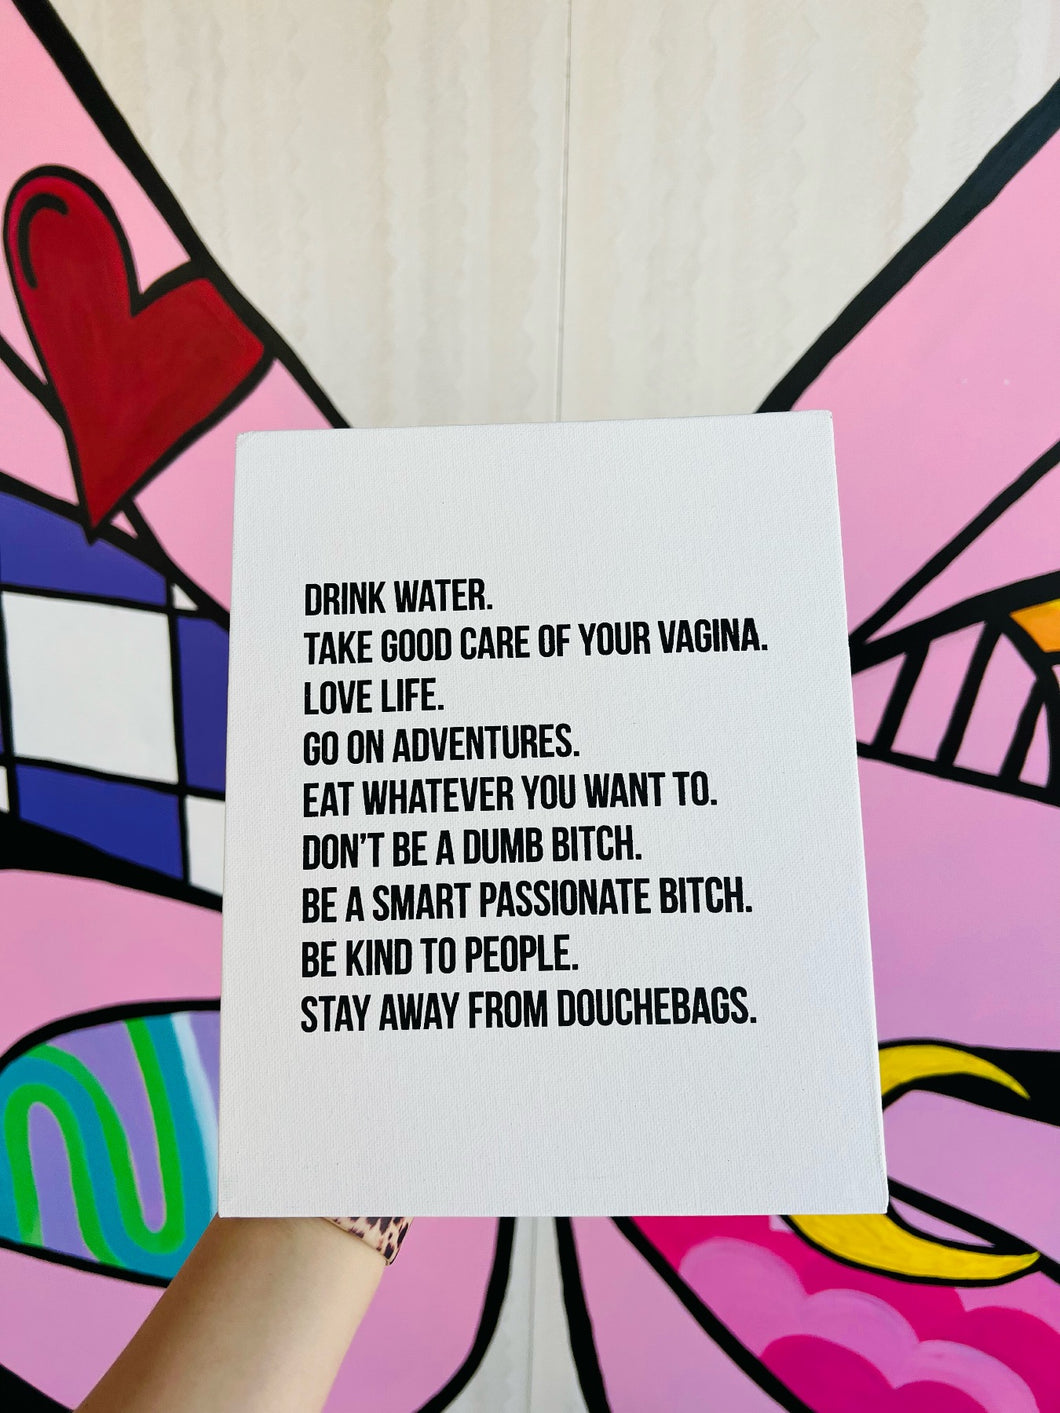 DRINK WATER.
TAKE GOOD CARE OF YOUR VAGINA.
LOVE LIFE.
GO ON ADVENTURES.
EAT WHATEVER YOU WANT TO.
DON'T BE A DUMB BITCH.
BE A SMART PASSIONATE BITCH.
BE KIND TO PEOPLE.
STAY AWAY FROM DOUCHEBAGS.